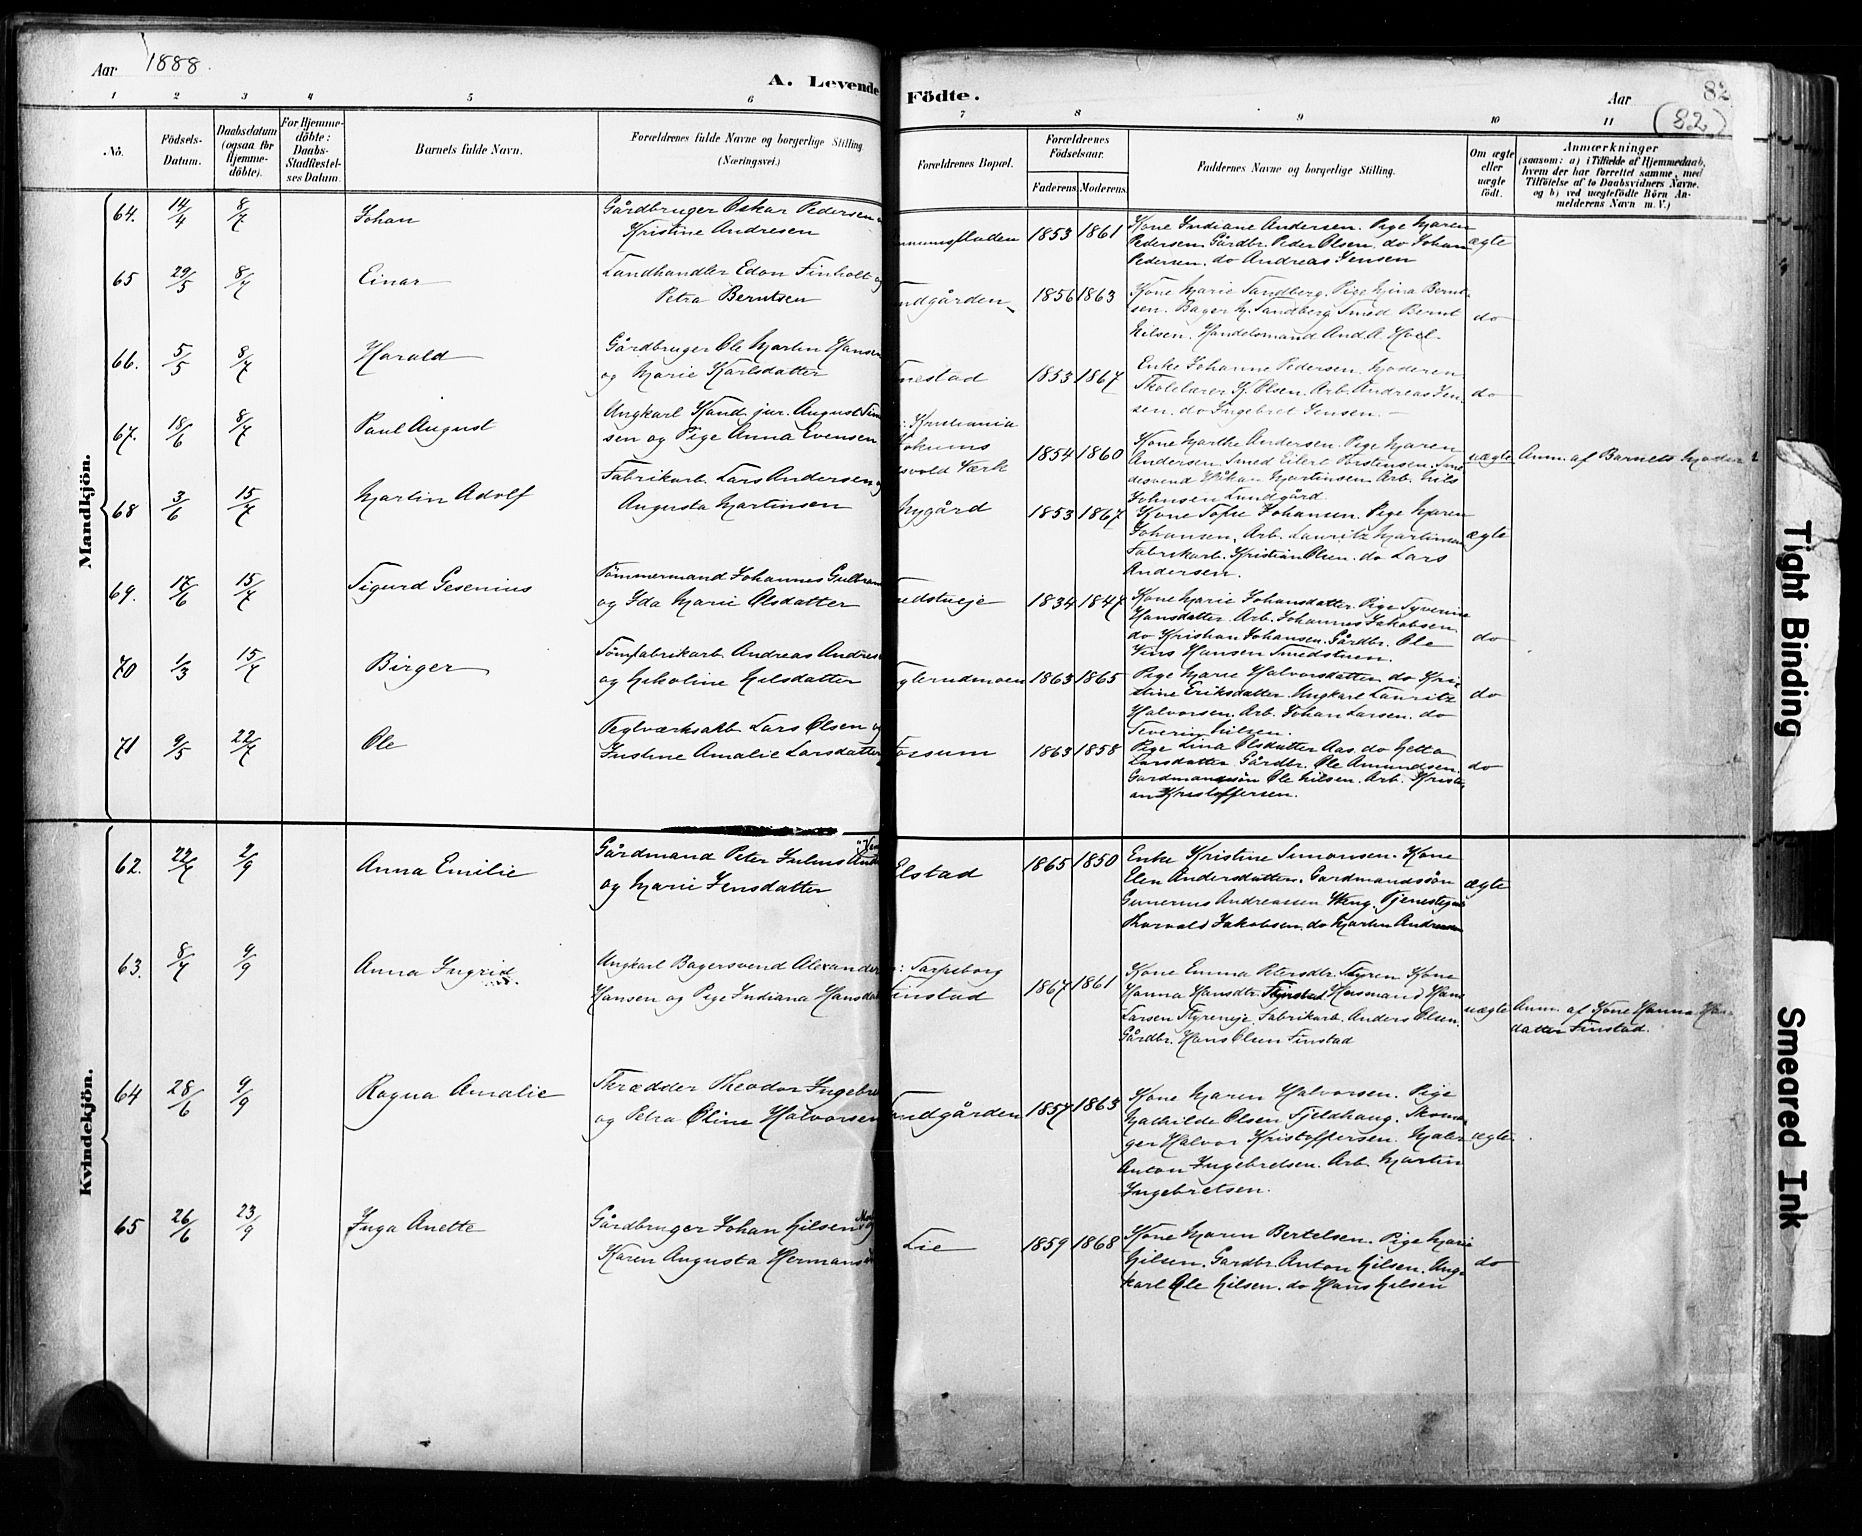 Aar 1888.
A. Levende Födte.
Aar
82
(82)
1 2 3 4 5 6 7 8 9 10 11
No.
Födsels-Datum.
Daabsdatum (ogsaa for Hjemme-döbte).
For Hjemme-döbte: Daabs-Stadfæstel-ses Datum.
Barnets fulde Navn.
Forældrenes fulde Navne og borgerlige Stilling (Næringsvei.)
Forældrenes Bopæl.
Forældrenes Födselsaar.
Faderens. Moderens.
Faddernes Navne og borgerlige Stilling.
Om ægte eller uægte födt.
Anmærkninger
(saasom: a) i Tilfælde af Hjemmedaab, hvem der har forrettet samme, med Tilföielse af to Daabsvidners Navne, og b) ved uægtefödte Börn An-melderens Navn m. V.)
Mandkjön.
64. 14/4 8/7 Johan
Gårdbruger Oskar Pedersen
Kristine Andresen
1853 1861
Kone Indiane Andersen. Pige Maren
Pedersen. Gårdbr. Peder Olsen. do Johan
Pedersen. do Andreas Jensen
ægte
65 29/5 8/7 Einar
Landhandler Edon Finholt og
Petra Berntsen
1856 1863
Kone Marie Sandberg. Pige Mina Bernt-
sen. Bager M. Sandberg. Smed Bernt
Nilsen. Handelsmand And. A. Hoel
do
66. 5/5 8/7 Harald
Gårdbruger Ole Martin Hansen
og Marie Karlsdatter
1853 1867
Enke Johanne Pedersen. Moderen
Skolelærer K. Olsen. Arb. Andreas Jen-
sen. do Ingebret Jensen. –
do
67. 18/6 8/7 Paul August
Ungkarl Kand. jur. August
sen og Pige Anna Evensen
Kristiania
svold Værk
1854 1860
Kone Marthe Andersen. Pige Maren
Andersen. Smed Eilert Torstensen. Sme
desvend Håkan Martinsen. Arb. Nils
Johnsen Lundgård
uægte
Anm. af Barnets Moder
68 3/6 15/7 Martin Adolf
Fabrikarb. Lars Andersen og
Augusta Martinsen
Nygård
1853 1867
Kone Sofie Johansen. Pige Maren
Johansen. Arb. Lauritz Martinsen
Fabrikarb. Kristian Olsen. do Lars
Andersen.
ægte
69. 17/6 15/7 Sigurd Gesenius
Tömmermand Johannes Gulbran
og Ida Marie Olsdatter
1834 1847
Kone Marie Johansdatter. Pige Syverine
Hansdatter. Arb. Johannes Jakobsen
do Kristian Johansen. Gårdbr. Ole
Hansen Smedstuen.
do
70 1/3 15/7 Birger
Andreas Andres
og Nikoline Nilsdatter
1863 1865
Pige Marie Halvorsdatter. do Kri-
stine Eriksdatter. Ungkarl Lauritz
Halvorsen. Arb. Johan Larsen. do
Severin Nilsen.
do
71 9/5 22/7 Ole
Teglværksarb. Lars Olsen og
Justine Amalie Larsdatter
Fossum
1863 1858
Pige Lina Olsdatter Aas. do Netta
Larsdatter. Gårdbr. Ole Amundsen.
Gardmandssön Ole Nilsen. Arb. Kristi-
an Kristoffersen.
do
Kvindekjön.
62. 22/7 2/9 Anna Emilie
Gårdmand Peter Julius
og Marie Jensdatter
Elstad
1865 1850
Enke Kristine Simonsen. Kone
Elen Andersdatter. Gardmandssön
Gunerius Andreassen Tjenestegut
Thorvald Jakobsen. do Martin Andresen
ægte
63. 8/7 9/9 Anna Ingrid
Ungkarl Bagersvend Alexander
Hansen og Pige Indiana Hansdat
Sarpsborg
Finstad
1867 1861
Kone Emma Petersdtr. Styren Kone
Hanna Hansdtr. Finstad. Husmand Hans
Larsen Styreneje. Fabrikarb. Anders Olsen.
Gårdbr. Hans Olsen Finstad
uægte
Anm. af Kone Hanna Han
datter Finstad.
64 28/6 9/9 Ragna Amalie
Theodor Ingebre
og Petra Oline Halvorsen
1857 1863
Kone Maren Halvorsen. Pige
Mathilde Olsen Fjeldhaug. Skoma-
ger Halvor Kristoffersen. Maler
Anton Ingebretsen. Arb. Martin
Ingebretsen.
ægte
65 26/6 23/9 Inga Anette
Gårdbruger Johan Nilsen
Karen Augusta Hermans
Lie
1859 1868
Kone Maren Bertelsen. Pige Marie
Nilsen. Gardbr. Anton Nilsen. Ung-
karl Ole Nilsen. do Hans Nilsen
do
Tight Binding
Smeared Ink